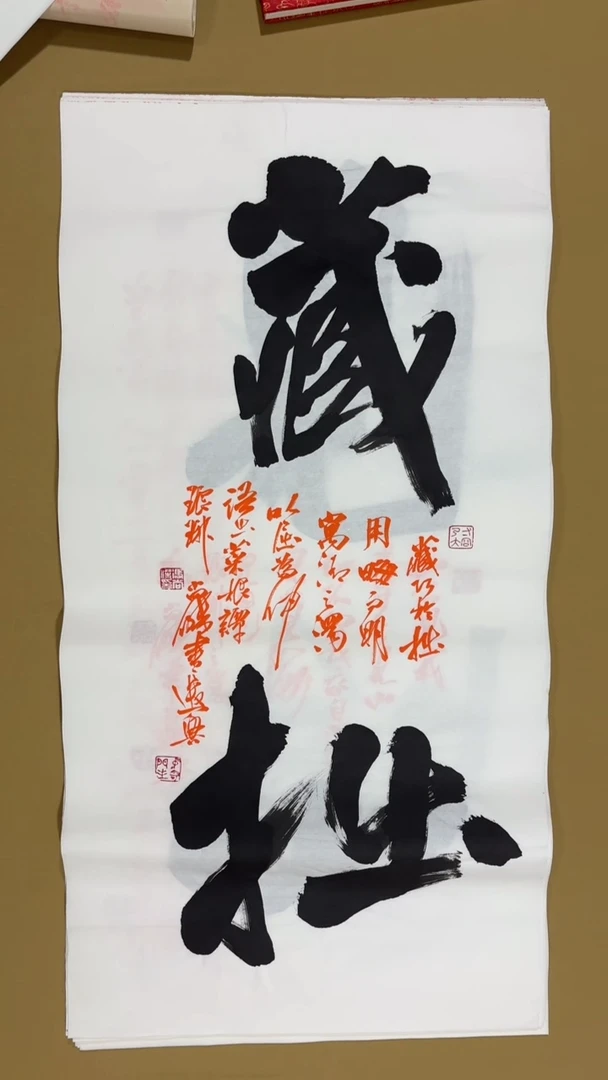 藏拙
藏巧於拙
用晦而明
寓清之濁
以屈為伸
語出菜根譚
書遣興